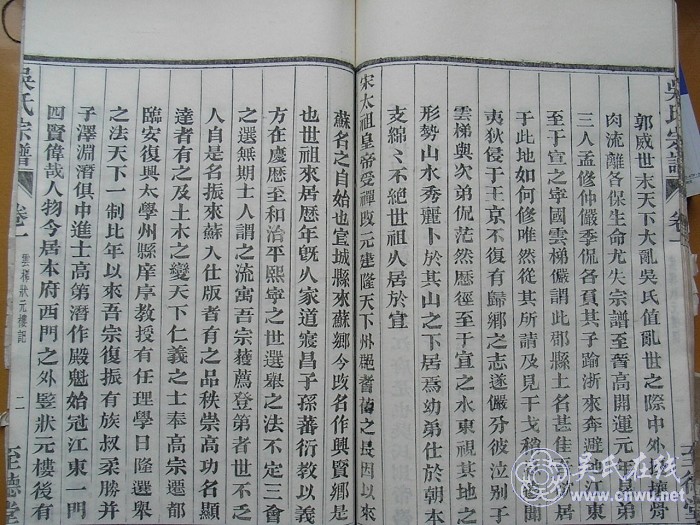 吳氏宗譜 卷一
郭威世末天下大亂吳氏值亂世之際中外搖擾骨
肉流離各保生命尤失宗譜至晉高開運元年昆弟
三人孟修仲儼季侃各負其子踰浙來奔避地江東
至于宣之寧國雲梯儼謂此郡縣土名甚佳
于此地如何修唯然從其所請及見干戈稍開
夷狄侵于王京不復有歸鄉之志遂儼分彼泣別于
雲梯與次弟侃茫然歷徑至于宣之水東視其地之
形勢山水秀麗卜於其山之下居焉幼弟仕於朝本
支綿〻不絕世祖人居於宣
宋太祖皇帝受禪改元建隆天下州郡耆舊之長因以來
蘇名之自始也宣城縣來蘇鄉今改名作興賢鄉是
也世祖來居歷年旣火家道寖昌子孫蕃衍教以義
方在慶歷至和治平熙寧之世選舉之法不定三會
之選無期士人謂之流寓吾宗穫薦登第者世不乏
人自是名振來蘇入仕版者有之品秩崇高功名顯
達者有之及土木之變天下仁義之士奉高宗遷都
臨安復興太學州縣庠序教授有任理學日隆選舉
之法天下一制比年以來吾宗復振有族叔柔勝并
子澤淵潛俱中進士高第潛作殿魁始冠江東一門
四賢偉哉人物今居本府西門之外竪狀元樓後有
吳氏宗譜 卷一 雲梯狀元樓記 二 至德堂
吴氏在线
www.cnwu.net